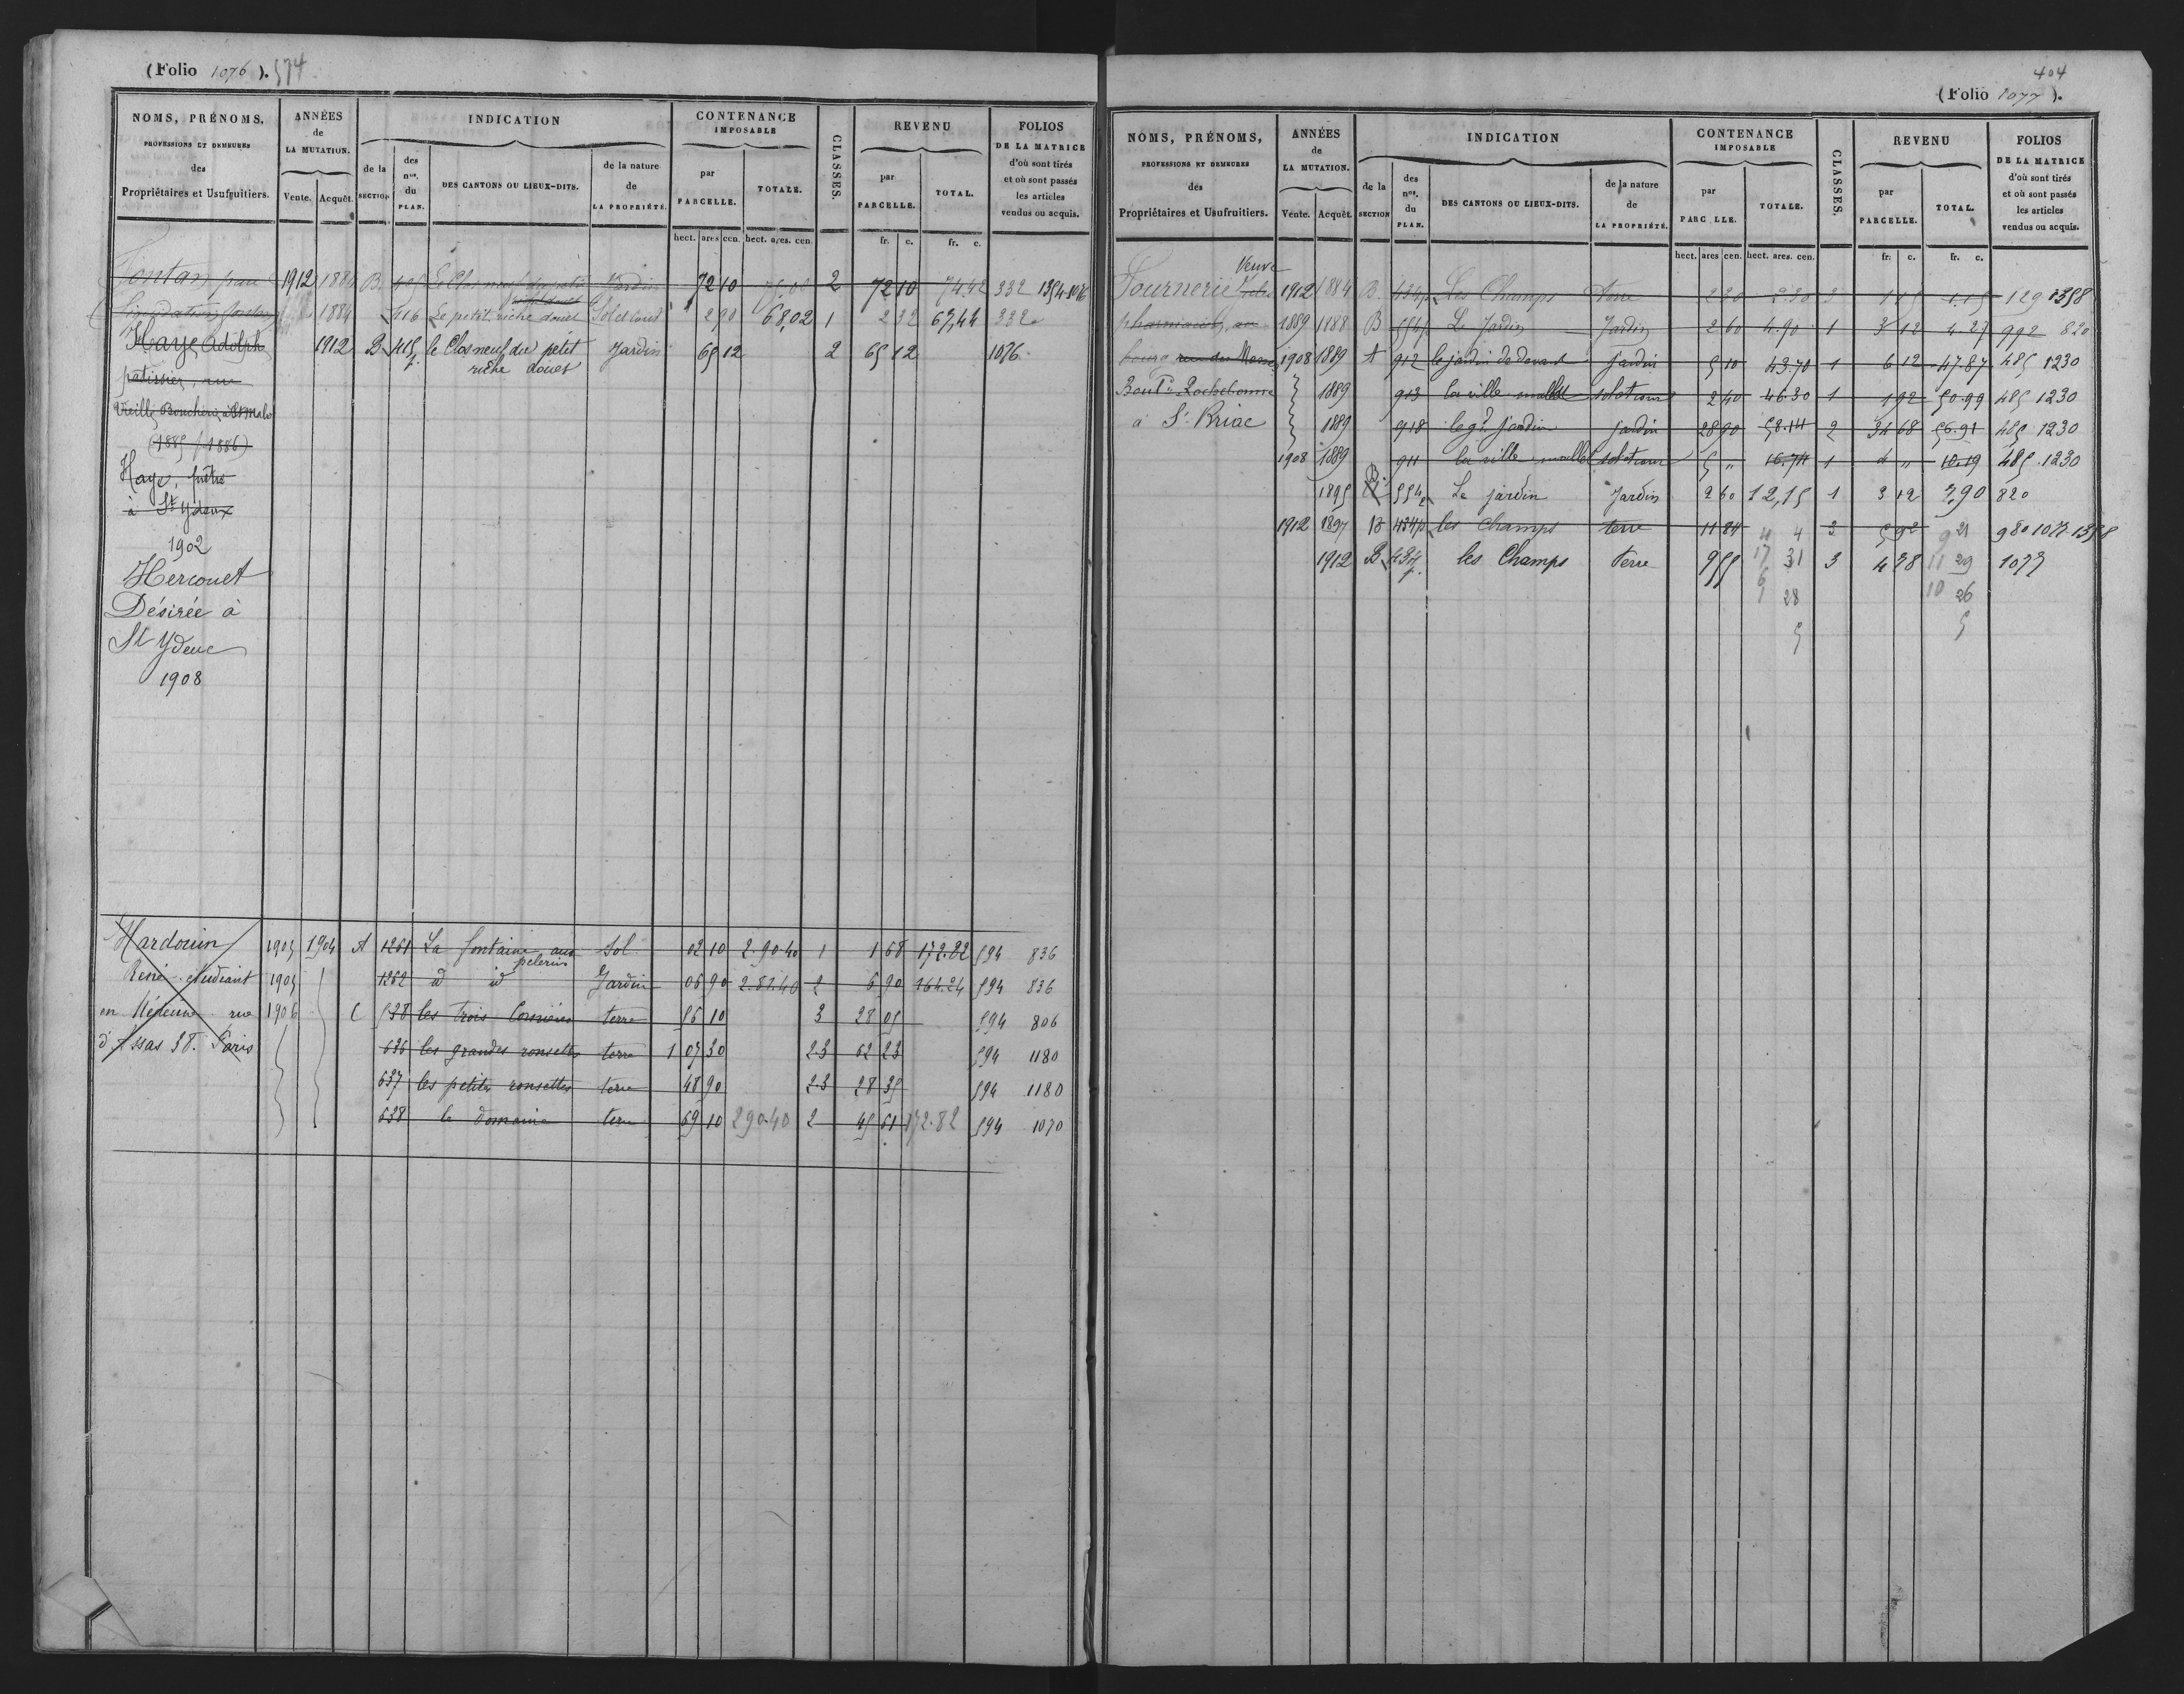 (Folio 1076). 574
NOMS, PRÉNOMS, PROFESSIONS ET DEMEURES des Propriétaires et Usufruitiers.
ANNÉES de LA MUTATION. Vente. Acquêt.
INDICATION
de la SECTION
des nos. du PLAN.
DES CANTONS OU LIEUX-DITS.
de la nature de LA PROPRIÉTÉ.
CONTENANCE IMPOSABLE
par PARCELLE. TOTALE.
hect. ares cen. hect. ares. cen.
CLASSES.
REVENU
par PARCELLE. TOTAL.
fr. c. fr. c.
FOLIOS DE LA MATRICE d'où sont tirés et où sont passés les articles vendus ou acquis.
Fontan 1912 1884 B. 415 Le Clos neuf du petit Jardin 72 10 2 72 10 74.42 332 1354-1076
riche douet
1884 416 Le petit riche douet Sol et cour 2 90 68,02 1 2 32 67,44 332
Haye Adolph 1912 B 415 p. le Clos neuf du petit Jardin 65 12 2 65 12 1076
riche douet
patissier, rue
Vieille Boucherie à St Malo
(1885 / 1886)
Haye, prêtre
à St Ydeux
1902
Hercouet
Désirée à
St Ydeuc
1908
Hardouin 1905 1904 A 1261 La fontaine aux Sol 02 10 2.90 40 1 1 68 172.82 594 836
pelerins
René étudiant 1905 1262 d id Jardin 06 90 2.51.40 2 6 90 164.24 594 836
en Médecine rue 1906 C 538 les trois Cornières terre 56 10 3 28 05 594 806
d'Assas 38. Paris 636 les grandes ronsettes terre 1 07 30 2.3 62 23 594 1180
637 les petites ronsettes terre 48 90 2.3 28 35 594 1180
638 le domaine terre 69 10 290.40 2 45 61 172.82 594 1070
404
(Folio 1077).
NOMS, PRÉNOMS, PROFESSIONS ET DEMEURES des Propriétaires et Usufruitiers.
ANNÉES de LA MUTATION. Vente. Acquêt.
INDICATION
de la SECTION
des nos. du PLAN.
DES CANTONS OU LIEUX-DITS.
de la nature de LA PROPRIÉTÉ.
CONTENANCE IMPOSABLE
par PARC LLE. TOTALE.
hect. ares cen. hect. ares. cen.
CLASSES.
REVENU
par PARCELLE. TOTAL.
fr. c. fr. c.
FOLIOS DE LA MATRICE d'où sont tirés et où sont passés les articles vendus ou acquis.
Veuve
Fournerie Jules 1912 1884 B. 434 p Les Champs terre 2 30 2.30 3 1 15 1.15 129 1358
pharmacien, au 1889 1888 B 554 p Le Jardin Jardin 2 60 4.90 1 3 12 4.27 992 820
bourg 1908 1889 A 912 le jardin de devant jardin 5 10 43.70 1 6 12 47.87 485 1230
Rochebonne 1889 913 la ville mallet sol et cour 2 40 46.30 1 1 92 50.99 485 1230
à St. Briac 1889 918 le gd. jardin jardin 28 90 58.14 2 34 68 56.91 485 1230
1908 1889 911 la ville mallet sol et cour 5 " 16.74 1 4 " 10.19 485 1230
1895 B 554 p Le jardin Jardin 2 60 12,15 1 3 12 7,90 820
1912 1897 B 434 p les champs terre 11 84 4 4 3 5 92 9 21 980 1077-1358
1912 B 434 p. les Champs terre 9 55 17 31 3 4 78 11 29 1077
6 28 10 26
5 5